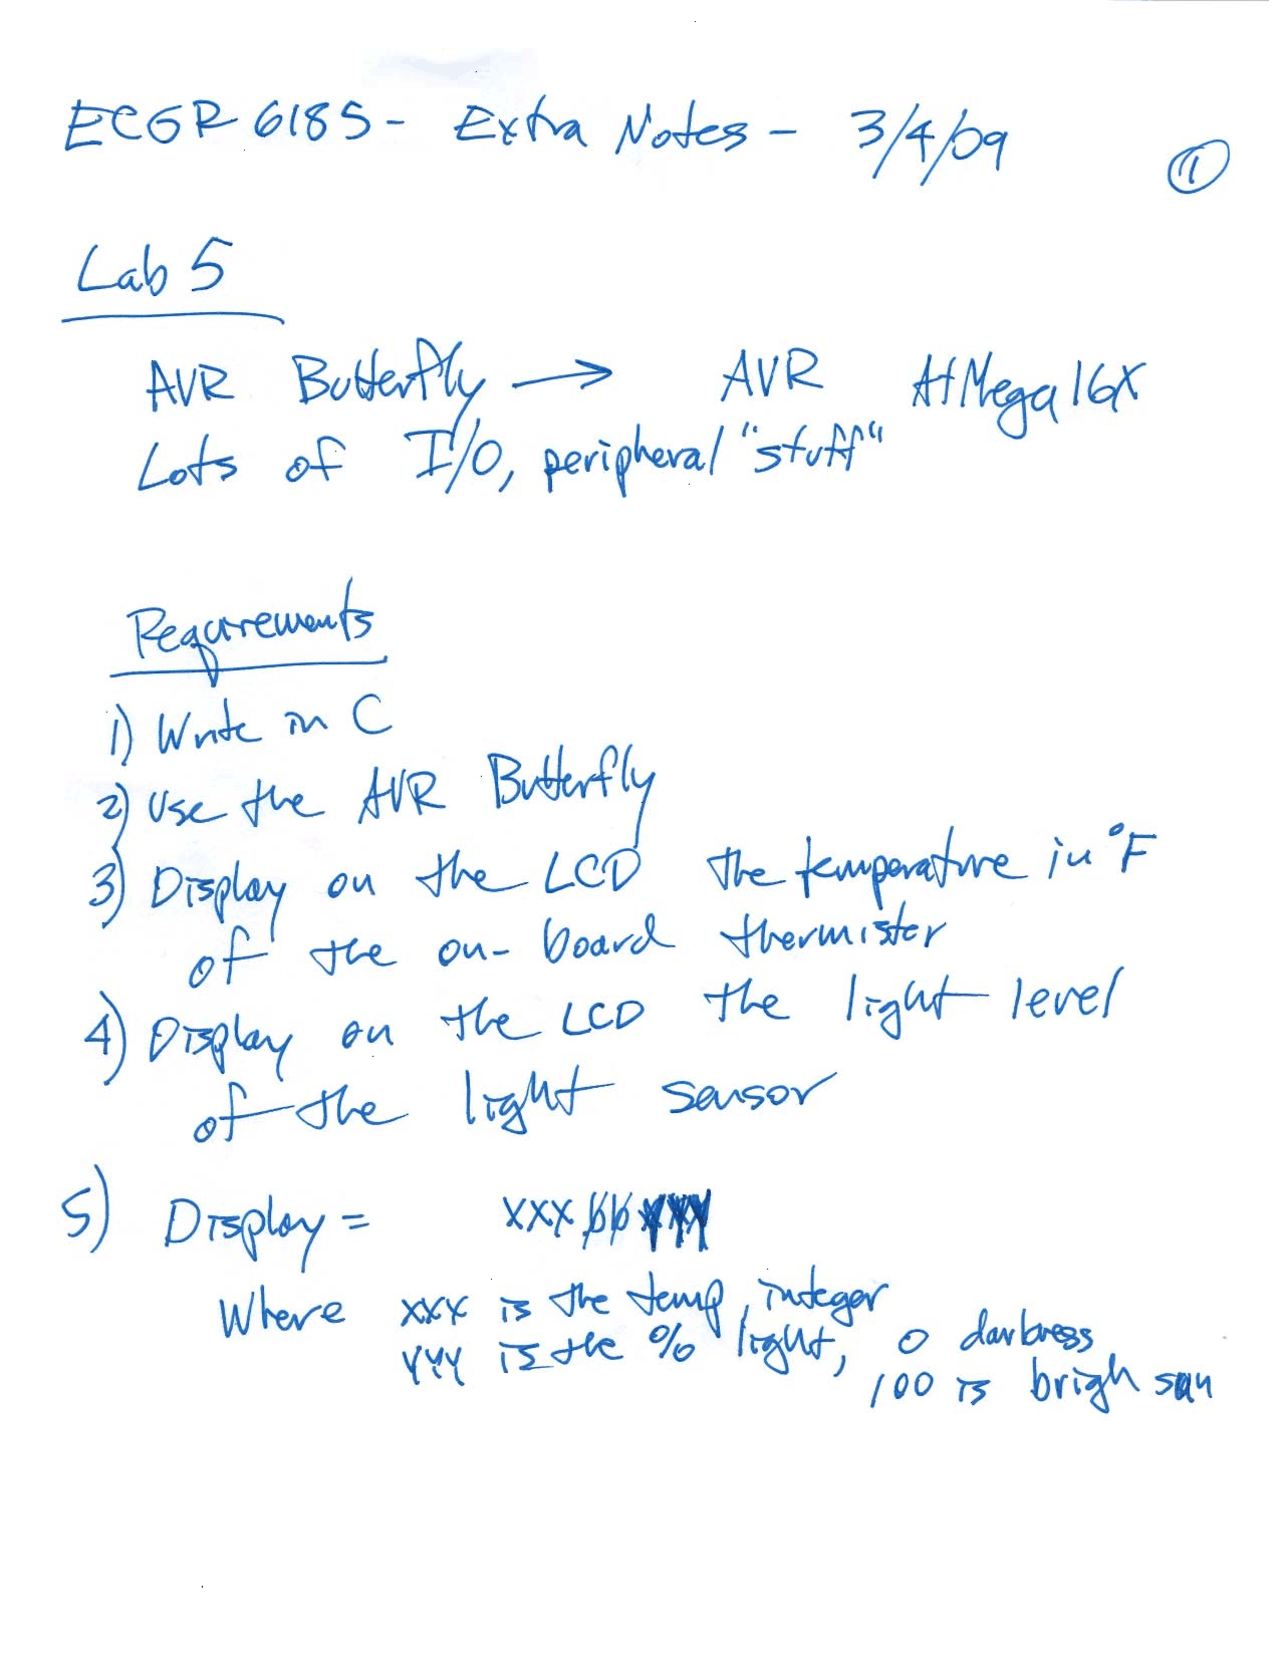 ECGR 6185 - Extra Notes - 3/4/09
1
Lab 5
AVR Butterfly → AVR AtMega16X
Lots of I/O, peripheral "stuff"
Requirements
1) Write in C
2) Use the AVR Butterfly
3) Display on the LCD the temperature in °F
of the on-board thermister
4) Display on the LCD the light level
of the light sensor
5) Display = XXXbbYYY
Where XXX is the temp, integer
YYY is the % light, 0 darkness
100 is brigh sun